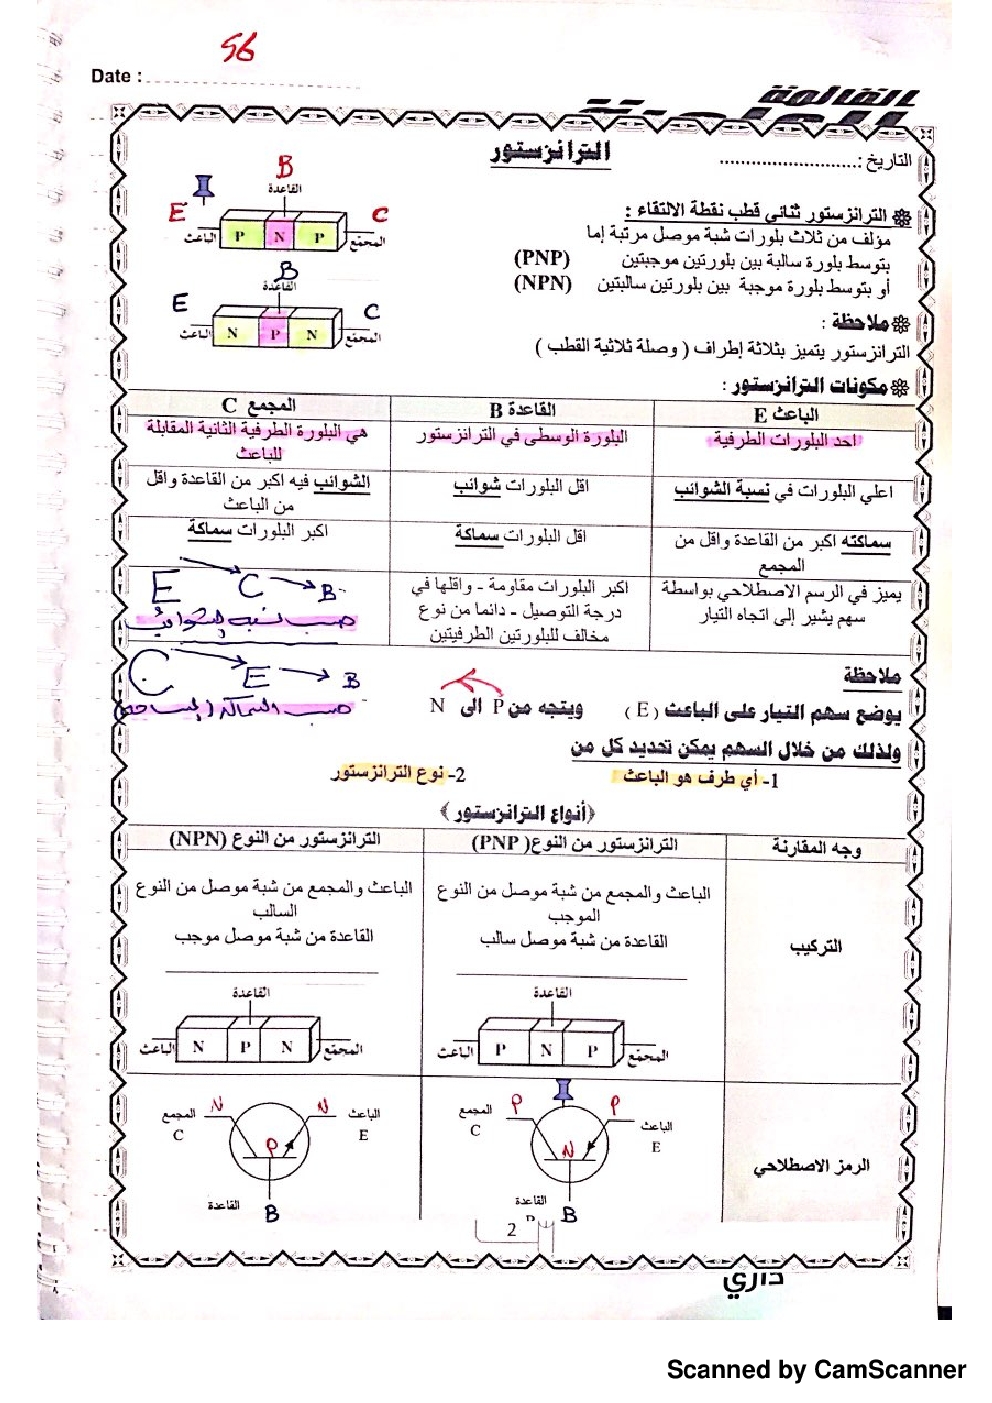 56
Date :
القائمة
الترانزستور
التاريخ :
الترانزستور ثنائي قطب نقطة الالتقاء :
مؤلف من ثلاث بلورات شبة موصل مرتبة إما
بتوسط بلورة سالبة بين بلورتين موجبتين (PNP)
أو بتوسط بلورة موجبة بين بلورتين سالبتين (NPN)
B
القاعدة
E
C
الباعث
P N P
المجمع
B
القاعدة
E
C
الباعث
N P N
المجمع
ملاحظة :
الترانزستور يتميز بثلاثة إطراف ( وصلة ثلاثية القطب )
مكونات الترانزستور :
الباعث E
القاعدة B
المجمع C
احد البلورات الطرفية
البلورة الوسطى في الترانزستور
هي البلورة الطرفية الثانية المقابلة
للباعث
اعلي البلورات في نسبة الشوائب
اقل البلورات شوائب
الشوائب فيه اكبر من القاعدة واقل
من الباعث
سماكته اكبر من القاعدة واقل من
المجمع
اقل البلورات سماكة
اكبر البلورات سماكة
يميز في الرسم الاصطلاحي بواسطة
سهم يشير إلى اتجاه التيار
اكبر البلورات مقاومة - واقلها في
درجة التوصيل - دائما من نوع
مخالف للبلورتين الطرفيتين
E C B
حسب نسبه الشوائب
C E B
حسب السماكة (المساحة)
ملاحظة
يوضع سهم التيار على الباعث ( E ) ويتجه من P الى N
ولذلك من خلال السهم يمكن تحديد كل من
1- أي طرف هو الباعث
2- نوع الترانزستور
(أنواع الترانزستور)
وجه المقارنة
الترانزستور من النوع( PNP)
الترانزستور من النوع (NPN)
التركيب
الباعث والمجمع من شبة موصل من النوع
الموجب
القاعدة من شبة موصل سالب
القاعدة
الباعث
P N P
المجمع
الباعث والمجمع من شبة موصل من النوع
السالب
القاعدة من شبة موصل موجب
القاعدة
الباعث
N P N
المجمع
الرمز الاصطلاحي
المجمع
C
P P
N
الباعث
E
القاعدة
B
المجمع
C
N N
P
الباعث
E
القاعدة
B
2
داري
Scanned by CamScanner